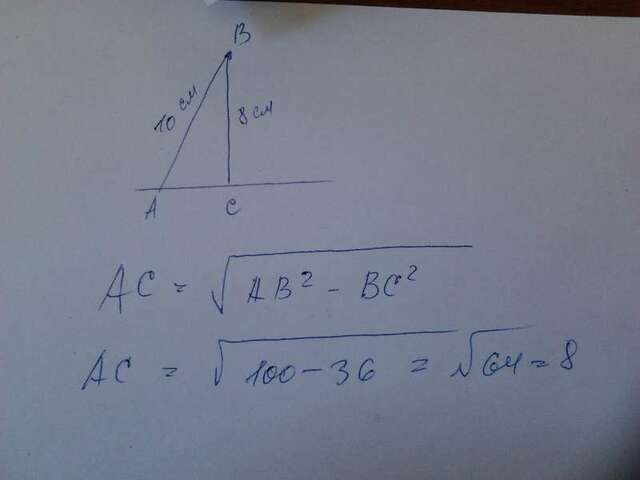 B
10 см
8 см
A
C
AC = √AB² - BC²
AC = √100-36 = √64 = 8